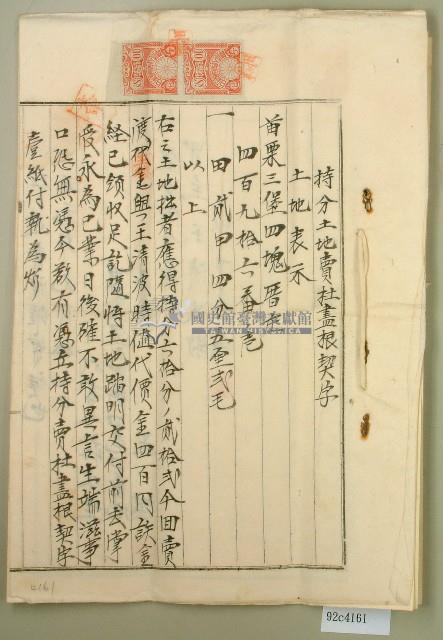 持分土地賣杜盡根契字
土地表示
苗栗三堡四塊厝庄
四百九拾六番
一田貳甲四分五厘弍毛
以上
右之土地拙者應得持分六拾分ノ貳拾弍今回賣
渡与王清波時価代價金四百円該金
経已領收足訖隨將土地踏明交付前去掌
受永為己業日後確不敢異言生端滋事
口恐無憑今欲有憑立持分賣杜盡根契字
壹紙付執為炤
國史館臺灣文獻館
TAIWAN HISTORICA
4161
92c4161